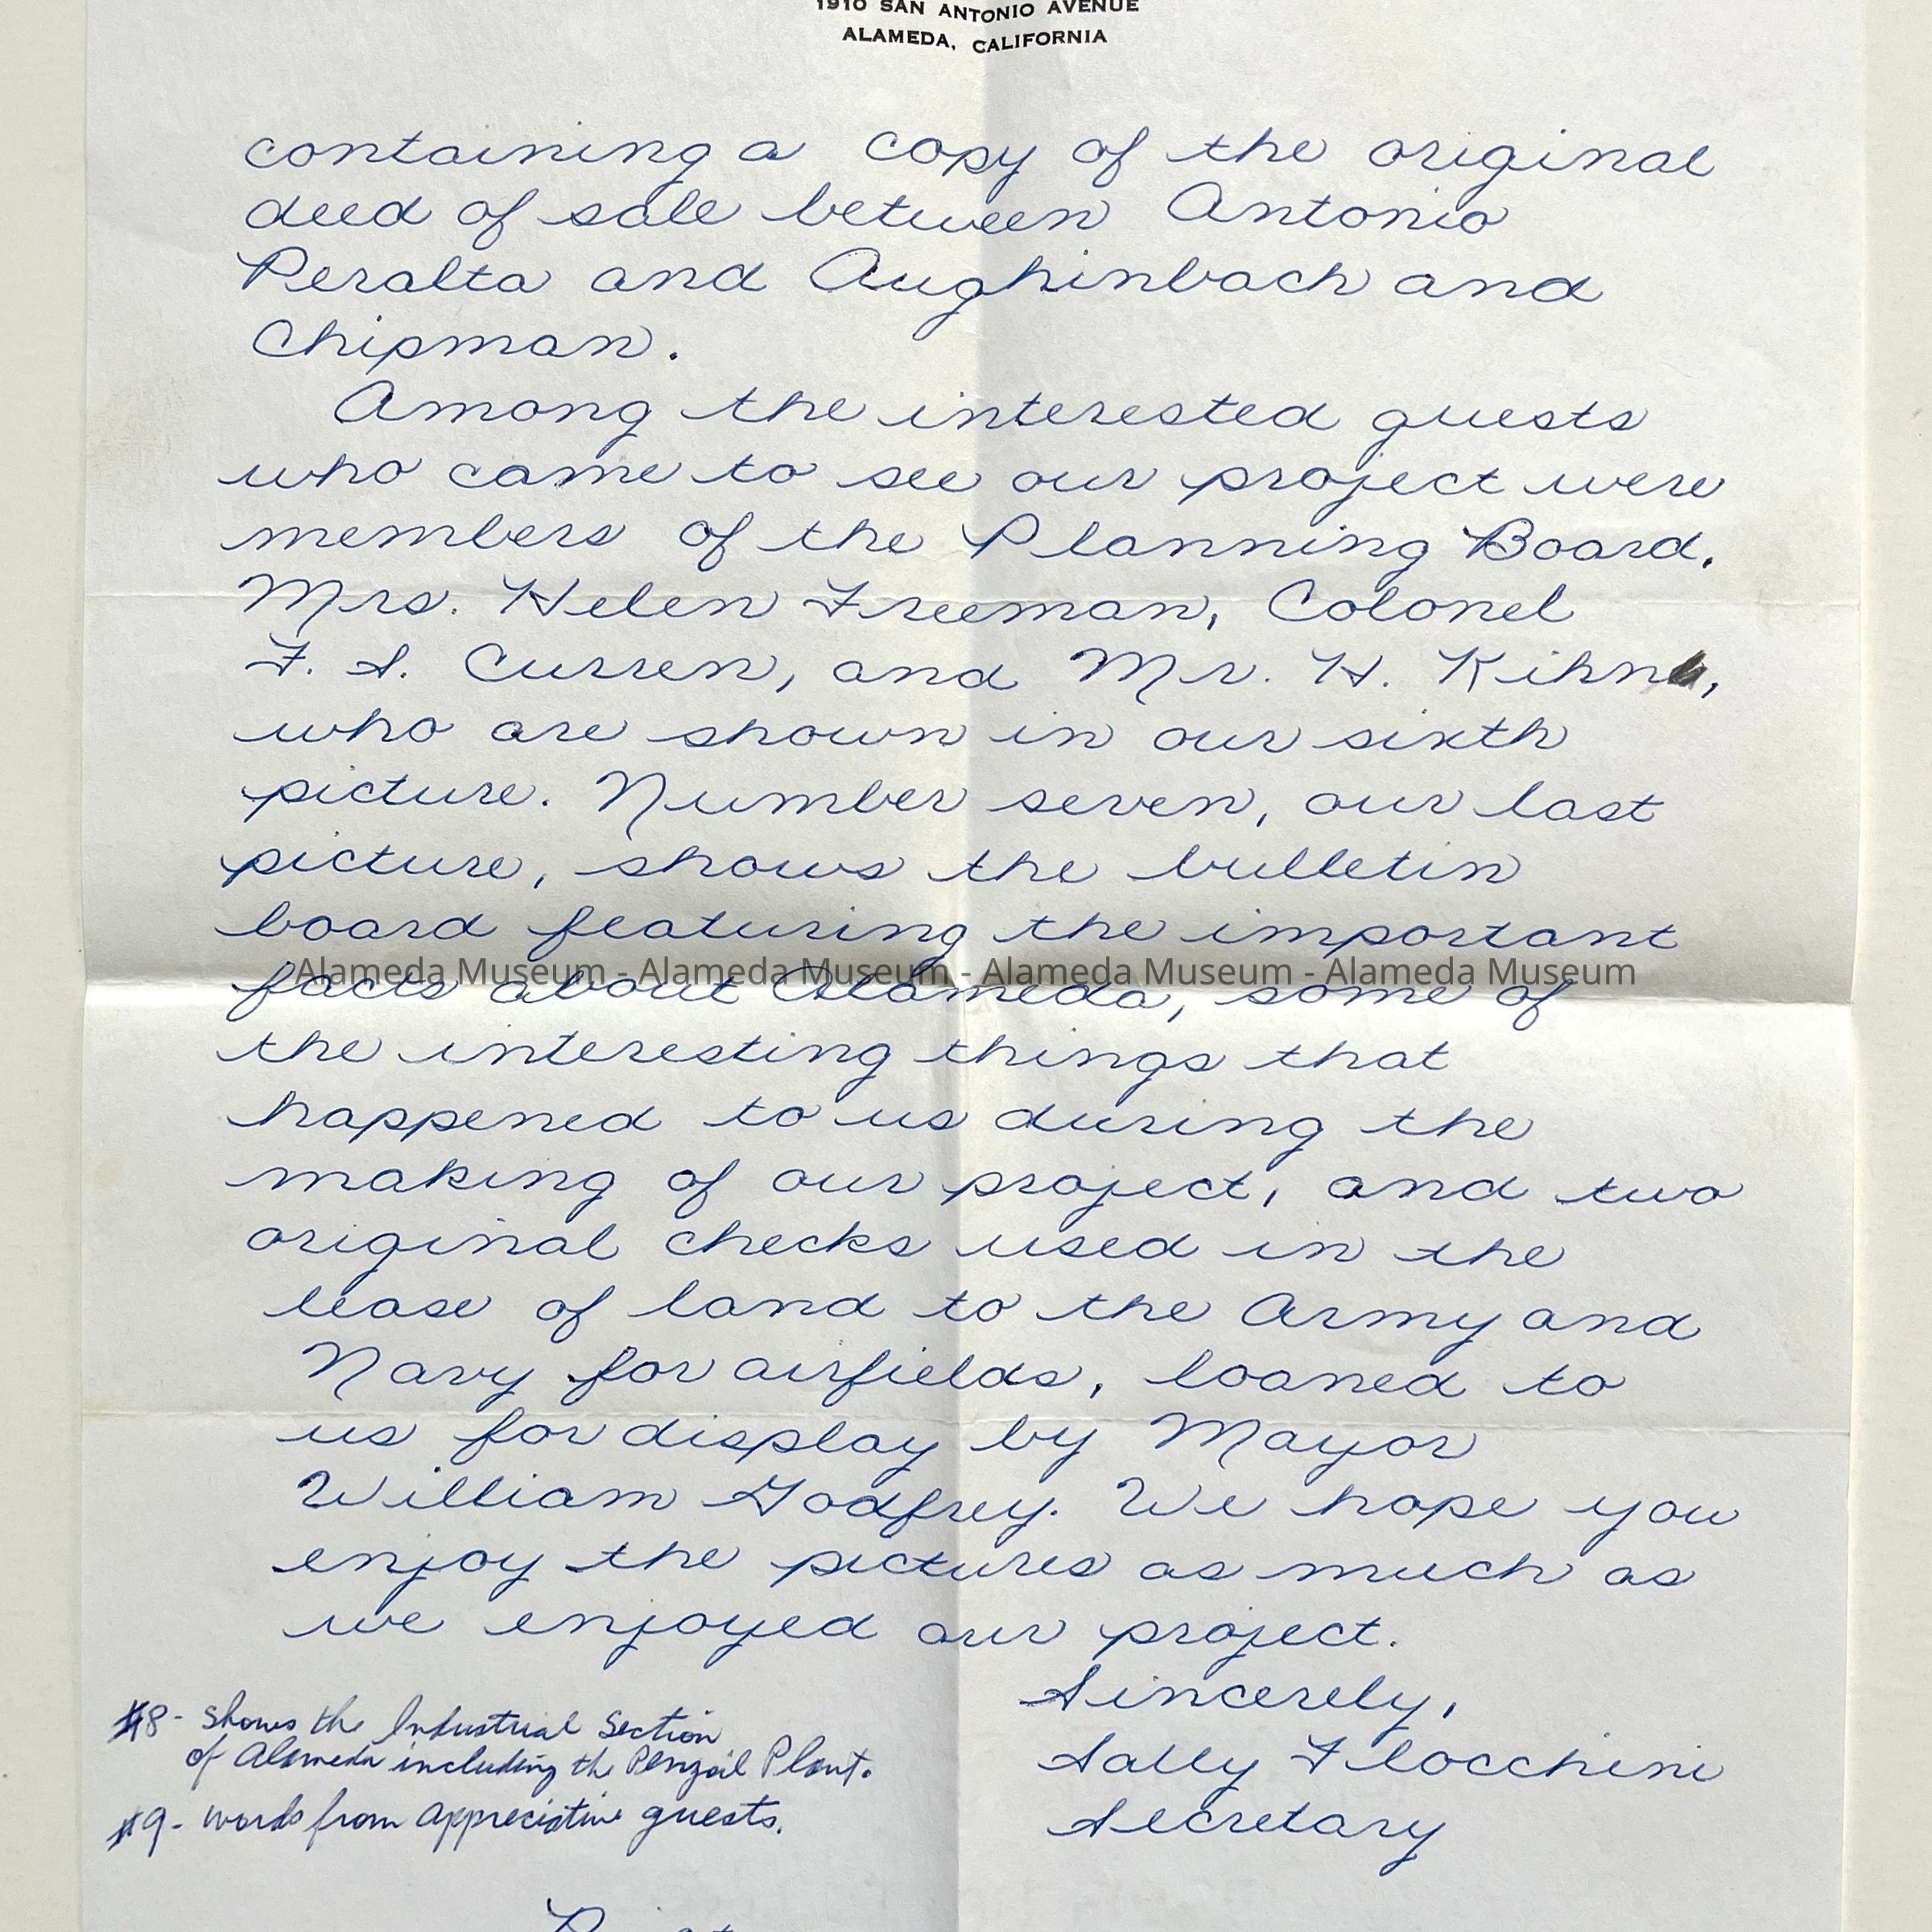 1910 SAN ANTONIO AVENUE
ALAMEDA, CALIFORNIA
containing a copy of the original
deed of sale between Antonio
Peralta and Aughinbach and
Chipman.
Among the interested guests
who came to see our project were
members of the Planning Board.
Mrs. Helen Freeman, Colonel
F. S. Curren, and Mr. H. Kihn,
who are shown in our sixth
picture. Number seven, our last
picture, shows the bulletin
board featuring the important
Alameda Museum - Alameda Museum - Alameda Museum - Alameda Museum
facts about Alameda, some of
the interesting things that
happened to us during the
making of our project, and two
original checks used in the
lease of land to the Army and
Navy for airfields, loaned to
us for display by Mayor
William Godfrey. We hope you
enjoy the pictures as much as
we enjoyed our project.
Sincerely,
Sally Flocchini
Secretary
#8- shows the Industrial Section
of Alameda including the Penzoil Plant.
#9- words from appreciative guests.